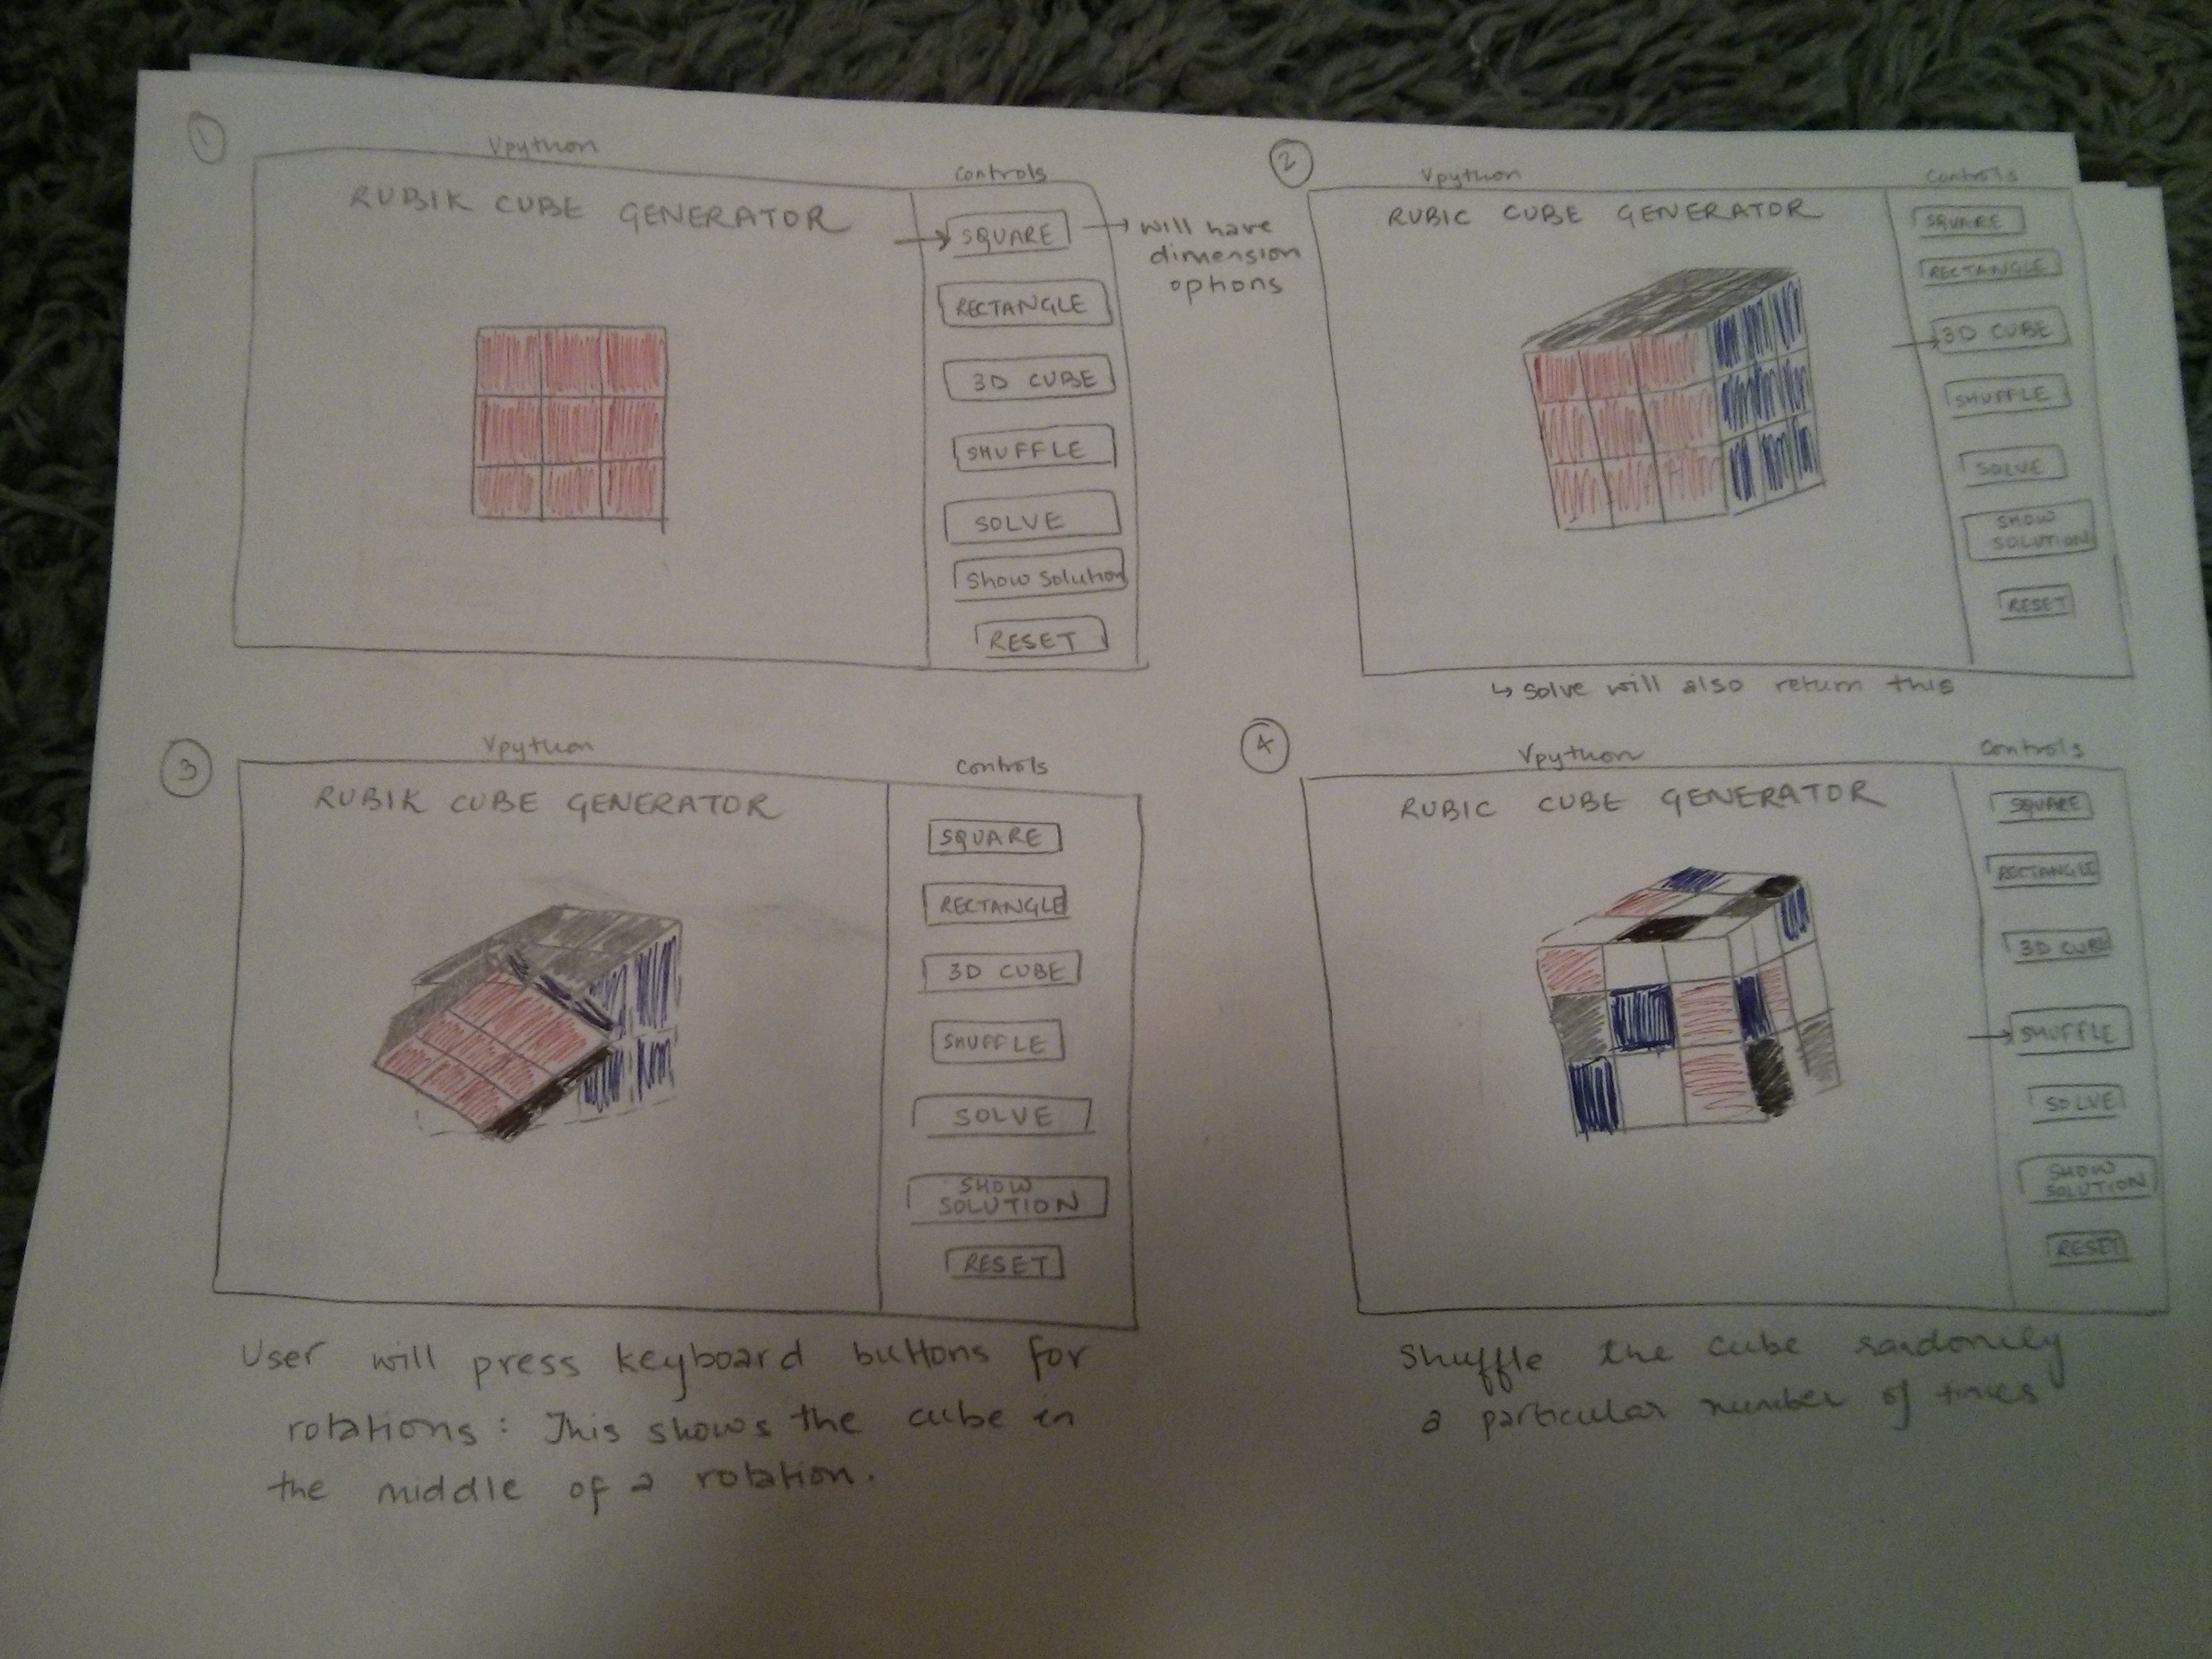 1
Vpython
Controls
RUBIK CUBE GENERATOR
SQUARE
will have
dimension
options
RECTANGLE
3D CUBE
SHUFFLE
SOLVE
Show Solution
RESET
2
Vpython
Controls
RUBIC CUBE GENERATOR
SQUARE
RECTANGLE
3D CUBE
SHUFFLE
SOLVE
SHOW
SOLUTION
RESET
↳ Solve will also return this
3
Vpython
Controls
RUBIK CUBE GENERATOR
SQUARE
RECTANGLE
3D CUBE
SHUFFLE
SOLVE
SHOW
SOLUTION
RESET
User will press keyboard buttons for
rotations: This shows the cube in
the middle of a rotation.
4
Vpython
Controls
RUBIC CUBE GENERATOR
SQUARE
RECTANGLE
3D CUBE
SHUFFLE
SOLVE
SHOW
SOLUTION
RESET
Shuffle the cube randomly
a particular number of times